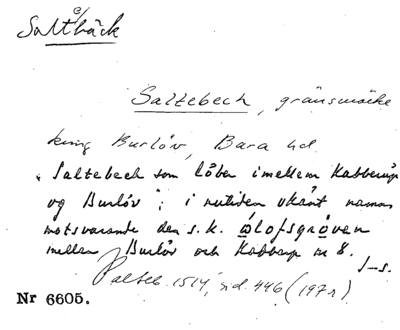 Saltebäck
Saltebech, gränsmärke
kring Burlöv, Bara hd
"Saltebech som löber imellem Kabberup
og Burlöv"; i nutiden okänt namn
motsvarande den s. k. Olofsgröven
mellan Burlöv och Kabberup nr 8.
J–s.
Palteb. 1514, sid. 446 (197r)
Nr 6605.